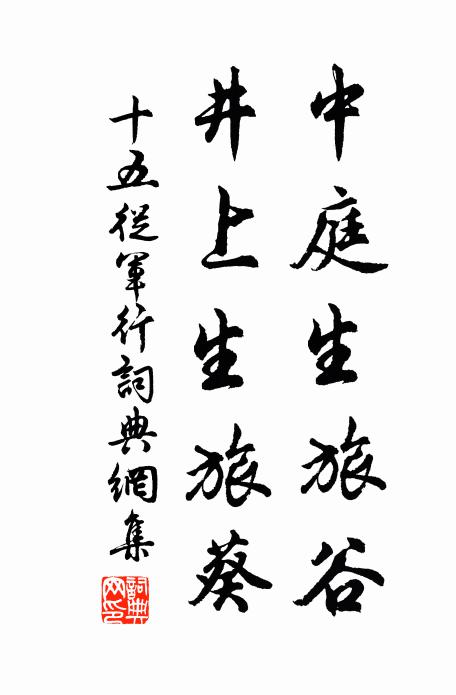 中庭生旅谷
井上生旅葵
十五從軍行詞典網集
詞典
網印